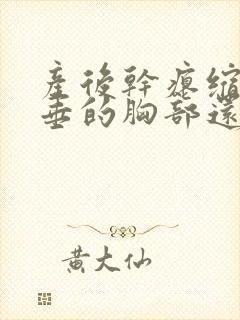 產後幹瘪縮
垂的胸部還
黃大仙